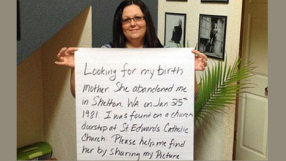 Looking for my birth
Mother. She abandoned me
in Shelton, Wa on Jan 25th
1981. I was found on a church
doorstep at St Edwards Catholic
Church. Please help me find
her by sharing my picture